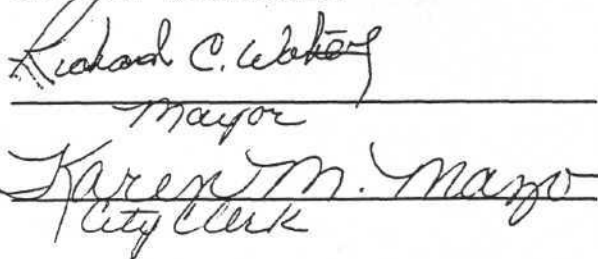 Richard C.
Mayor
Karen M. Mazo
City Clerk